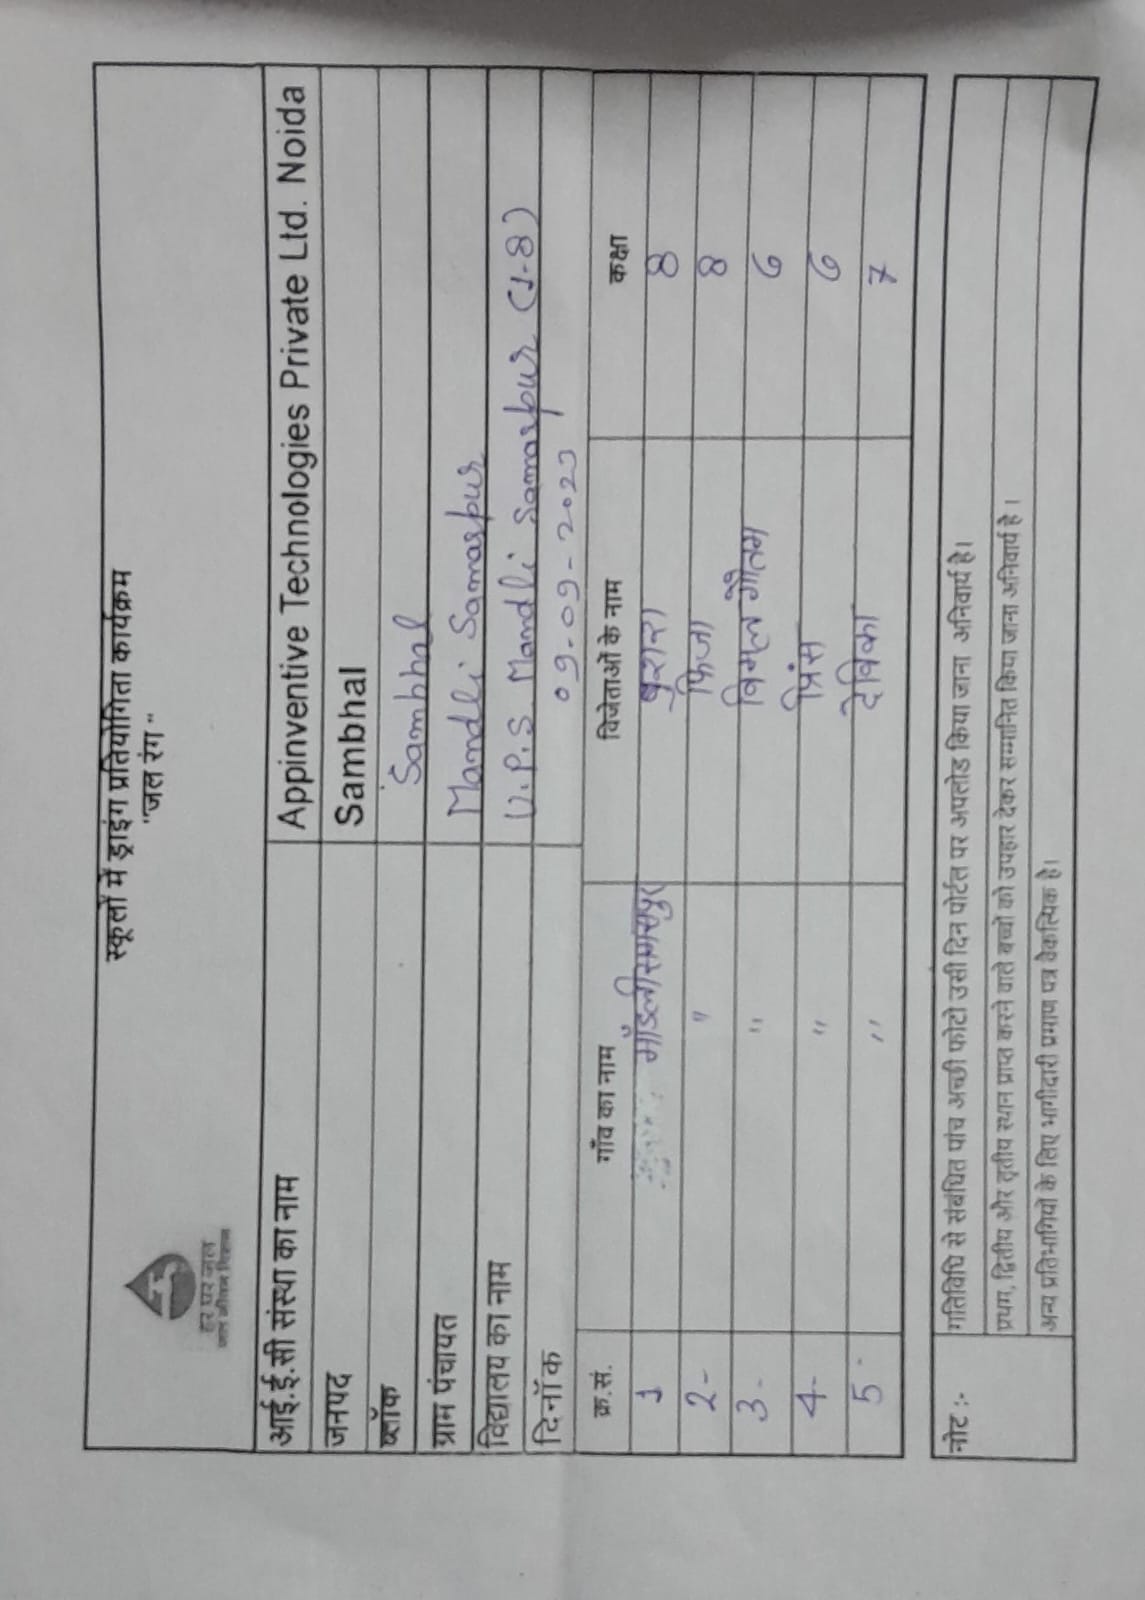 स्कूलों में ड्राइंग प्रतियोगिता कार्यक्रम
"जल रंग"
हर घर जल
जल जीवन मिशन
आई.ई.सी संस्था का नाम Appinventive Technologies Private Ltd. Noida
जनपद Sambhal
ब्लॉक Sambhal
ग्राम पंचायत Mandli Samaspur
विद्यालय का नाम U.P.S Mandli Samaspur (1-8)
दिनॉक 09-09-2023
क्र.सं. गाँव का नाम विजेताओं के नाम कक्षा
1 मॉडलीसमसपुर 8
2- " फिजा 8
3- " विमल गौतम 6
4- " प्रिंस 6
5- " देविका 7
नोट :- गतिविधि से संबंधित पांच अच्छी फोटो उसी दिन पोर्टल पर अपलोड किया जाना अनिवार्य है।
प्रथम, द्वितीय और तृतीय स्थान प्राप्त करने वाले बच्चों को उपहार देकर सम्मानित किया जाना अनिवार्य है ।
अन्य प्रतिभागियों के लिए भागीदारी प्रमाण पत्र वैकल्पिक है।